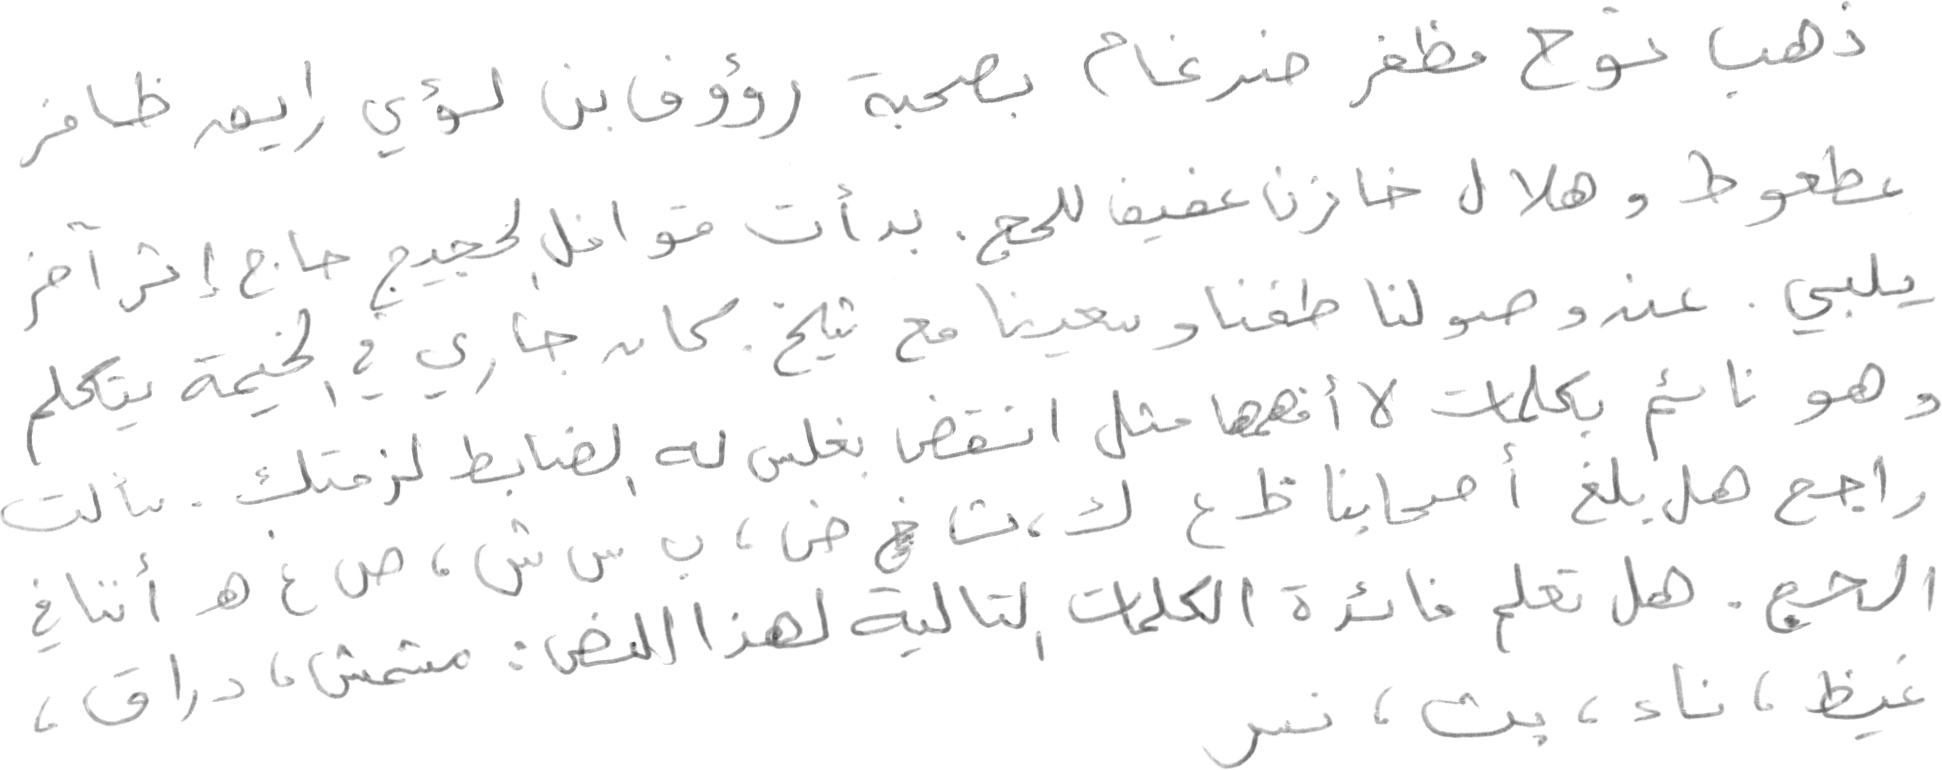 ذهب نوح مظفر ضرغام بصحبة رؤوف بن لؤي رايه ظافر
عطعوط وهلال خازن عفيف للحج. بدأت قوافل الحجيج حاج إثر آخر
يلبي. عند وصولنا طفنا وسعينا مع شيخ. كان جاري في الخيمة يتكلم
وهو نائم بكلمات لا أفهمها مثل انقض بغلس له الضابط لزمتك. سألت
راجح هل بلغ أصحابنا ظ ع ك، ث خ ض، ب س ش، ص غ ه أننا في
الحج. هل تعلم فائدة الكلمات التالية لهذا النص: مشمش، دراق،
غيظ، ناء، بث، نسر